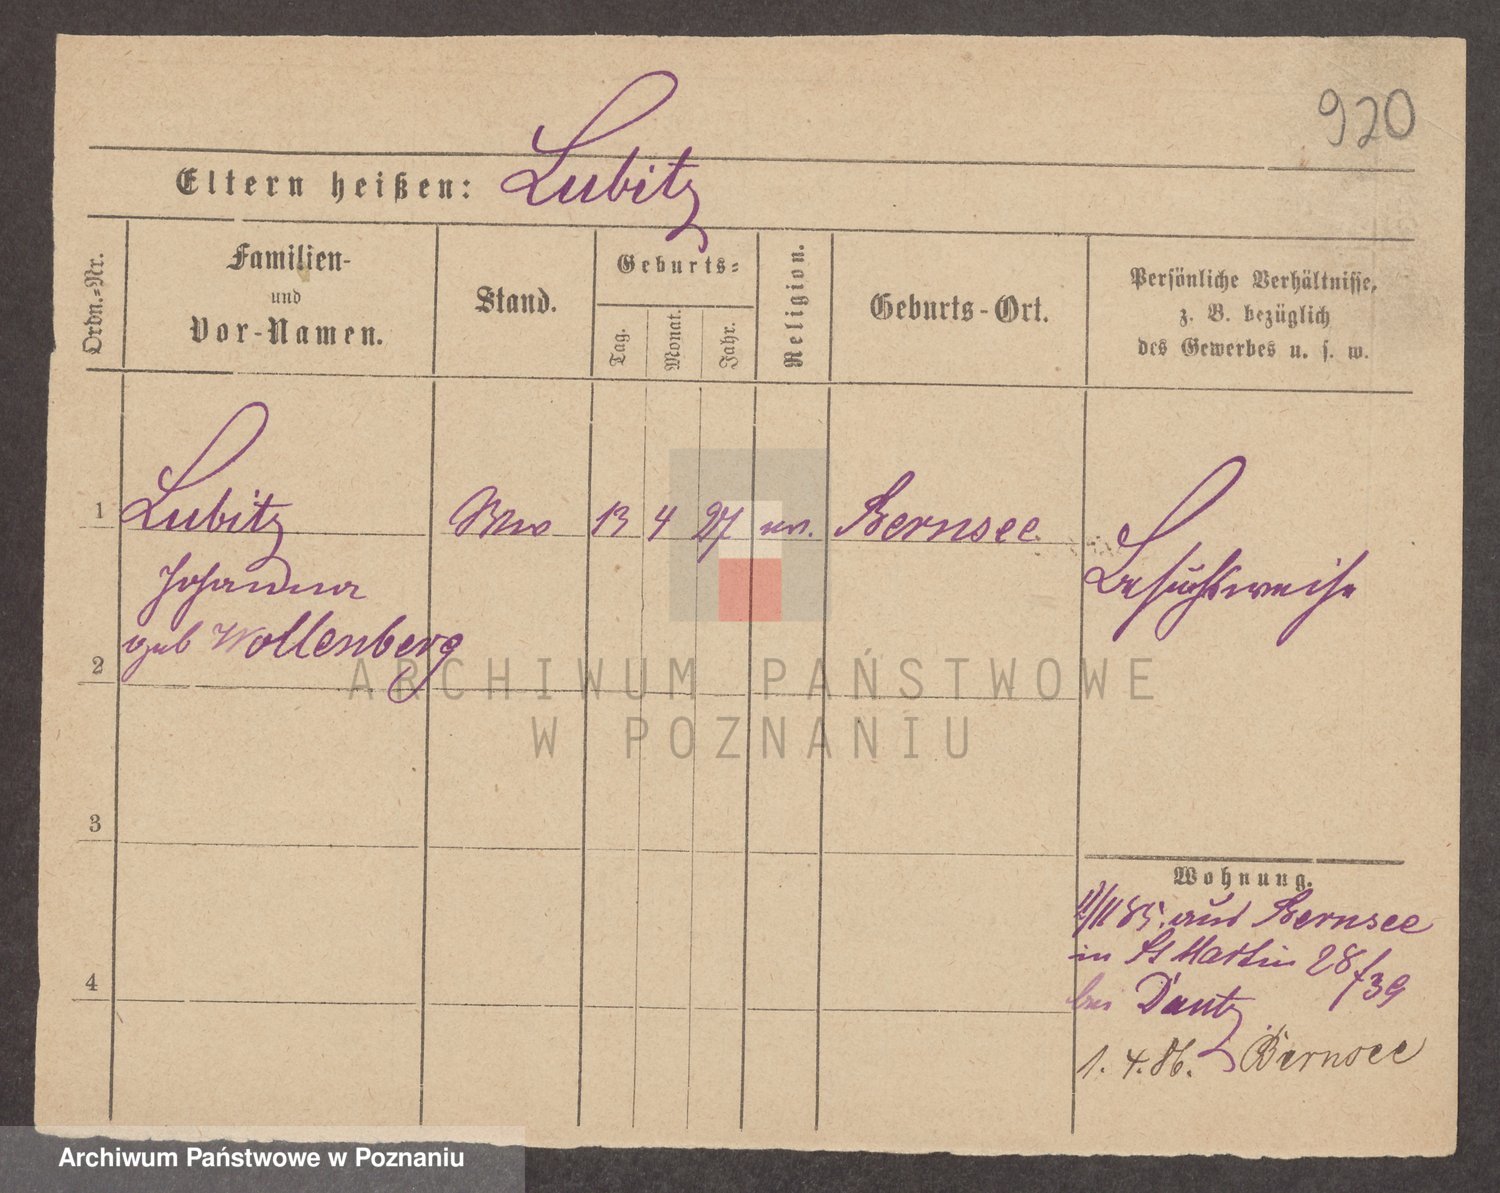 920
Eltern heißen: Lubitz
Ordn.-Nr.
Familien-
und
Vor-Namen.
Stand.
Geburts-
Tag.
Monat.
Jahr.
Religion.
Geburts-Ort.
Persönliche Verhältnisse,
z. B. bezüglich
des Gewerbes u. s. w.
1 Lubitz Wwe 13 4 27 ev. Bernsee
Johanna
geb Wollenberg
Besuchsweise
2
3
4
Wohnung.
11/11 85. aus Bernsee
in St Martin 28/39
bei Dautz
1. 4. 86. Bernsee
ARCHIWUM PAŃSTWOWE
W POZNANIU
Archiwum Państwowe w Poznaniu